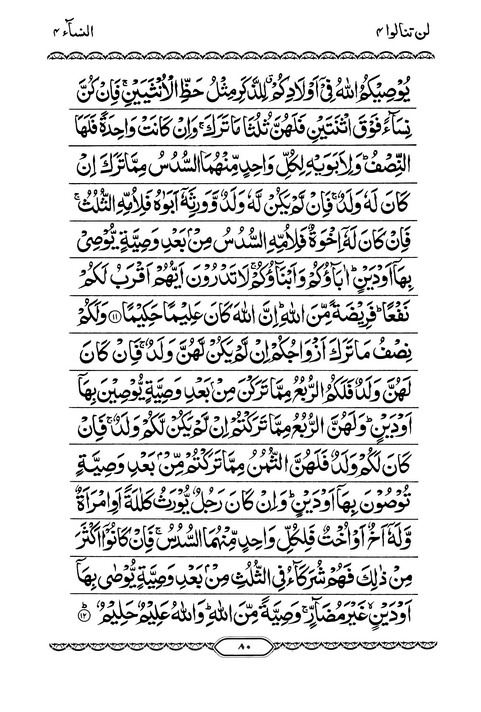 لن تنالوا ٤
النسآء ٤
يُوْصِيْكُمُ اللّٰهُ فِيْۤ اَوْلَادِكُمْ ۗ لِلذَّكَرِ مِثْلُ حَظِّ الْاُنْثَيَيْنِ ۚ فَاِنْ كُنَّ
نِسَآءً فَوْقَ اثْنَتَيْنِ فَلَهُنَّ ثُلُثَا مَا تَرَكَ ۚ وَاِنْ كَانَتْ وَاحِدَةً فَلَهَا
النِّصْفُ ؕ وَلِاَبَوَيْهِ لِكُلِّ وَاحِدٍ مِّنْهُمَا السُّدُسُ مِمَّا تَرَكَ اِنْ
كَانَ لَهٗ وَلَدٌ ۚ فَاِنْ لَّمْ يَكُنْ لَّهٗ وَلَدٌ وَّوَرِثَهٗۤ اَبَوٰهُ فَلِاُمِّهِ الثُّلُثُ ۚ
فَاِنْ كَانَ لَهٗۤ اِخْوَةٌ فَلِاُمِّهِ السُّدُسُ مِنْۢ بَعْدِ وَصِيَّةٍ يُّوْصِيْ
بِهَاۤ اَوْ دَيْنٍ ؕ اٰبَآؤُكُمْ وَاَبْنَآؤُكُمْ ۚ لَا تَدْرُوْنَ اَيُّهُمْ اَقْرَبُ لَكُمْ
نَفْعًا ؕ فَرِيْضَةً مِّنَ اللّٰهِ ؕ اِنَّ اللّٰهَ كَانَ عَلِيْمًا حَكِيْمًا ﴿١١﴾ وَلَكُمْ
نِصْفُ مَا تَرَكَ اَزْوَاجُكُمْ اِنْ لَّمْ يَكُنْ لَّهُنَّ وَلَدٌ ۚ فَاِنْ كَانَ
لَهُنَّ وَلَدٌ فَلَكُمُ الرُّبُعُ مِمَّا تَرَكْنَ مِنْۢ بَعْدِ وَصِيَّةٍ يُّوْصِيْنَ بِهَاۤ
اَوْ دَيْنٍ ؕ وَلَهُنَّ الرُّبُعُ مِمَّا تَرَكْتُمْ اِنْ لَّمْ يَكُنْ لَّكُمْ وَلَدٌ ۚ فَاِنْ
كَانَ لَكُمْ وَلَدٌ فَلَهُنَّ الثُّمُنُ مِمَّا تَرَكْتُمْ مِّنْۢ بَعْدِ وَصِيَّةٍ
تُوْصُوْنَ بِهَاۤ اَوْ دَيْنٍ ؕ وَاِنْ كَانَ رَجُلٌ يُّوْرَثُ كَلٰلَةً اَوِ امْرَاَةٌ
وَّلَهٗۤ اَخٌ اَوْ اُخْتٌ فَلِكُلِّ وَاحِدٍ مِّنْهُمَا السُّدُسُ ۚ فَاِنْ كَانُوْۤا اَكْثَرَ
مِنْ ذٰلِكَ فَهُمْ شُرَكَآءُ فِي الثُّلُثِ مِنْۢ بَعْدِ وَصِيَّةٍ يُّوْصٰى بِهَاۤ
اَوْ دَيْنٍ ۙ غَيْرَ مُضَآرٍّ ۚ وَصِيَّةً مِّنَ اللّٰهِ ؕ وَاللّٰهُ عَلِيْمٌ حَلِيْمٌ ﴿١٢﴾
٨٠